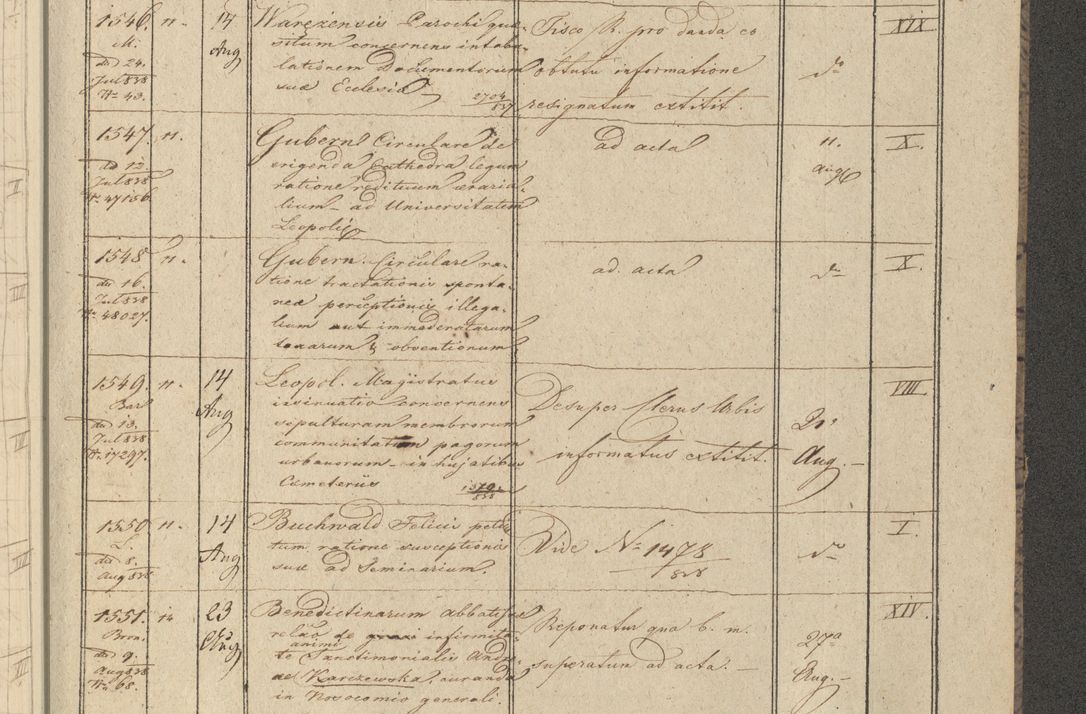 1546. 11. 14 Aug
M.
dto 24.
Jul 838
No 43.
Wareżensis Parochi quæ-
situm concernens intabu-
lationem Documentorum
suæ Ecclesiæ
2704/837
Fisco R. pro danda co
obtutu informatione
resignatum extitit.
do
XIX
1547. 11.
dto 12
Jul 838
No 47156
Gubern Circulare de
erigenda Cathedra legum
ratione redituum æraria-
lium ad Universitatem
Leopoli
ad acta
11.
Aug
X.
1548 11.
dto 16.
Jul 838
No 48027.
Gubern. Circulare ra-
tione tractationis sponta-
neæ perceptionis illega-
lium aut immoderatarum
taxarum & obventionum
ad. acta
do
X.
1549 11. 14 Aug
Bar
dto 13.
Jul 838
No 17297.
Leopol. Magistratus
insinuatio concernens
sepulturam membrorum
communitatum pagorum
urbanorum in hujatibus
Cæmeteriis
Desuper Clerus Urbis
informatus extitit.
Aug. -
VIII
1550 11. 14 Aug
L.
dto 8.
Aug 838
Buchwald Felicis peti-
tum ratione susceptionis
suæ ad Seminarium.
Vide No 1473/838
do
I.
1551. 14 23 Aug
dto 9.
Aug 838
No 68.
Benedictinarum Abbatissæ
relao de infirmita-
animi
te Sanctimonialis Andre-
ae Karczewska, curanda
in Nosocomio generali.
Reponatur qua b. m.
superatum ad acta. -
27a
Aug. -
XIV.